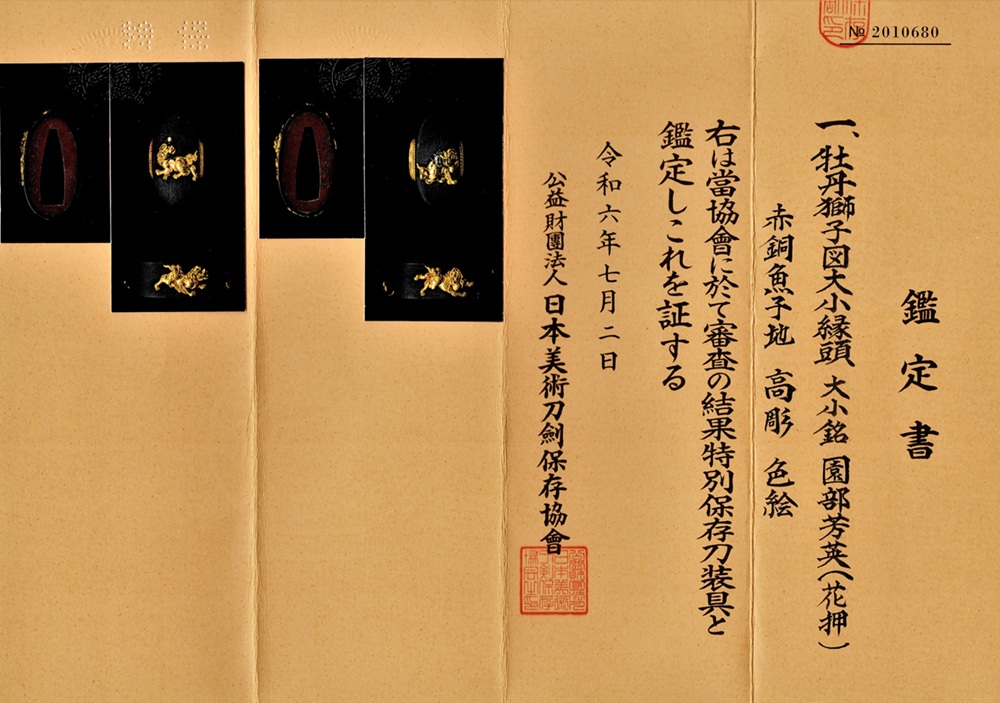 № 2010680
鑑定書
一、牡丹獅子図大小縁頭 大小銘 園部芳英(花押)
赤銅魚子地 高彫 色絵
右は當協會に於て審査の結果特別保存刀装具と
鑑定しこれを証する
令和六年七月二日
公益財團法人 日本美術刀劍保存協會